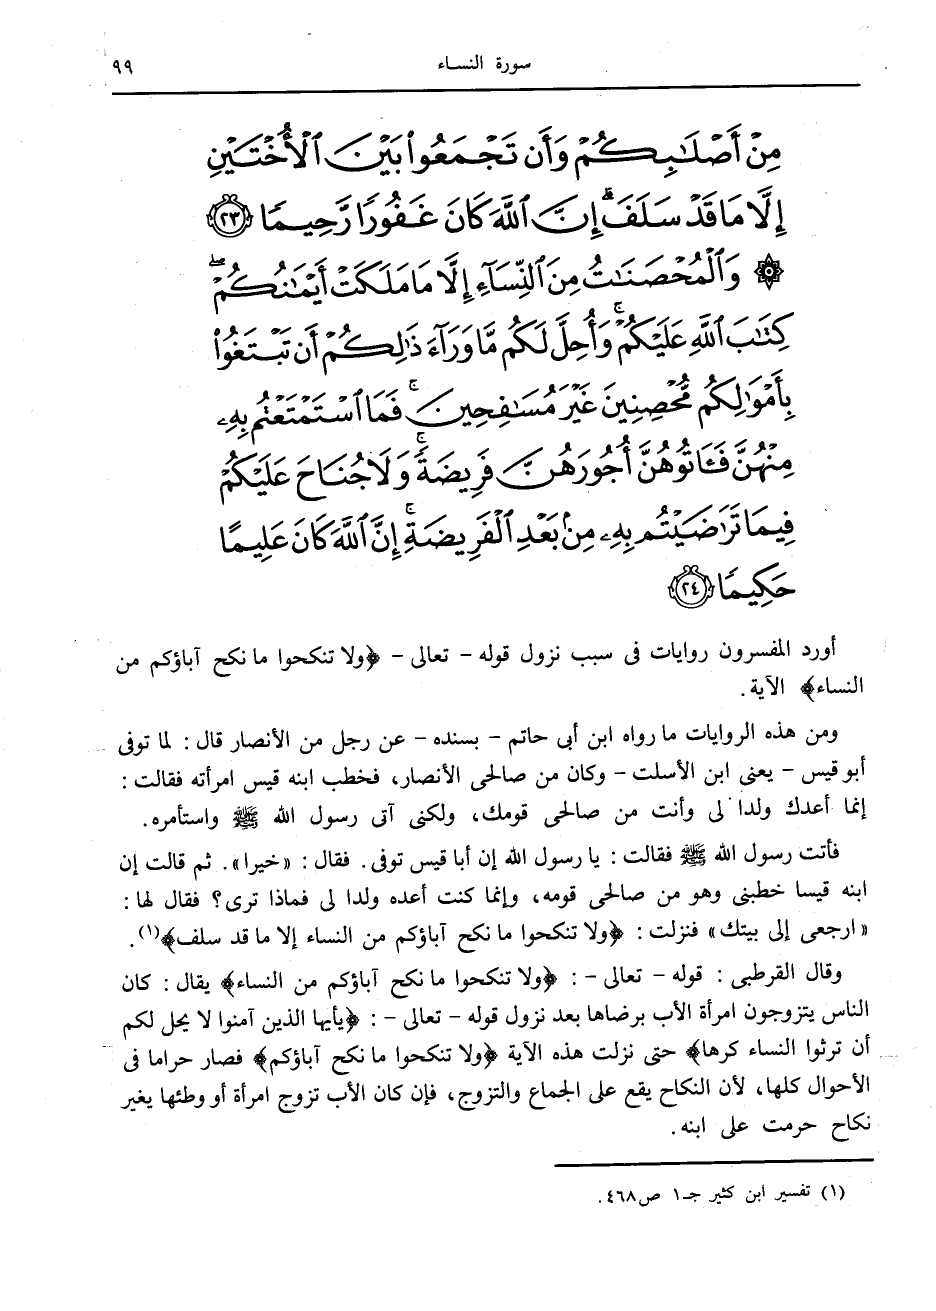 سورة النساء ٩٩
مِنْ أَصْلَٰبِكُمْ وَأَن تَجْمَعُوا۟ بَيْنَ ٱلْأُخْتَيْنِ
إِلَّا مَا قَدْ سَلَفَ ۗ إِنَّ ٱللَّهَ كَانَ غَفُورًا رَّحِيمًا ﴿٢٣﴾
۞ وَٱلْمُحْصَنَٰتُ مِنَ ٱلنِّسَآءِ إِلَّا مَا مَلَكَتْ أَيْمَٰنُكُمْ ۖ
كِتَٰبَ ٱللَّهِ عَلَيْكُمْ ۚ وَأُحِلَّ لَكُم مَّا وَرَآءَ ذَٰلِكُمْ أَن تَبْتَغُوا۟
بِأَمْوَٰلِكُم مُّحْصِنِينَ غَيْرَ مُسَٰفِحِينَ ۚ فَمَا ٱسْتَمْتَعْتُم بِهِۦ
مِنْهُنَّ فَـَٔاتُوهُنَّ أُجُورَهُنَّ فَرِيضَةً ۚ وَلَا جُنَاحَ عَلَيْكُمْ
فِيمَا تَرَٰضَيْتُم بِهِۦ مِنۢ بَعْدِ ٱلْفَرِيضَةِ ۚ إِنَّ ٱللَّهَ كَانَ عَلِيمًا
حَكِيمًا ﴿٢٤﴾
أورد المفسرون روايات فى سبب نزول قوله - تعالى - ﴿ولا تنكحوا ما نكح آباؤكم من
النساء﴾ الآية.
ومن هذه الروايات ما رواه ابن أبى حاتم - بسنده - عن رجل من الأنصار قال: لما توفى
أبو قيس - يعنى ابن الأسلت - وكان من صالحى الأنصار، فخطب ابنه قيس امرأته فقالت:
إنما أعدك ولدا لى وأنت من صالحى قومك، ولكنى آتى رسول الله ﷺ واستأمره.
فأتت رسول الله ﷺ فقالت: يا رسول الله إن أبا قيس توفى. فقال: «خيرا». ثم قالت إن
ابنه قيسا خطبنى وهو من صالحى قومه، وإنما كنت أعده ولدا لى فماذا ترى؟ فقال لها:
«ارجعى إلى بيتك» فنزلت: ﴿ولا تنكحوا ما نكح آباؤكم من النساء إلا ما قد سلف﴾(١).
وقال القرطبى: قوله - تعالى -: ﴿ولا تنكحوا ما نكح آباؤكم من النساء﴾ يقال: كان
الناس يتزوجون امرأة الأب برضاها بعد نزول قوله - تعالى -: ﴿يأيها الذين آمنوا لا يحل لكم
أن ترثوا النساء كرها﴾ حتى نزلت هذه الآية ﴿ولا تنكحوا ما نكح آباؤكم﴾ فصار حراما فى
الأحوال كلها، لأن النكاح يقع على الجماع والتزوج، فإن كان الأب تزوج امرأة أو وطئها بغير
نكاح حرمت على ابنه.
(١) تفسير ابن كثير جـ١ ص٤٦٨.